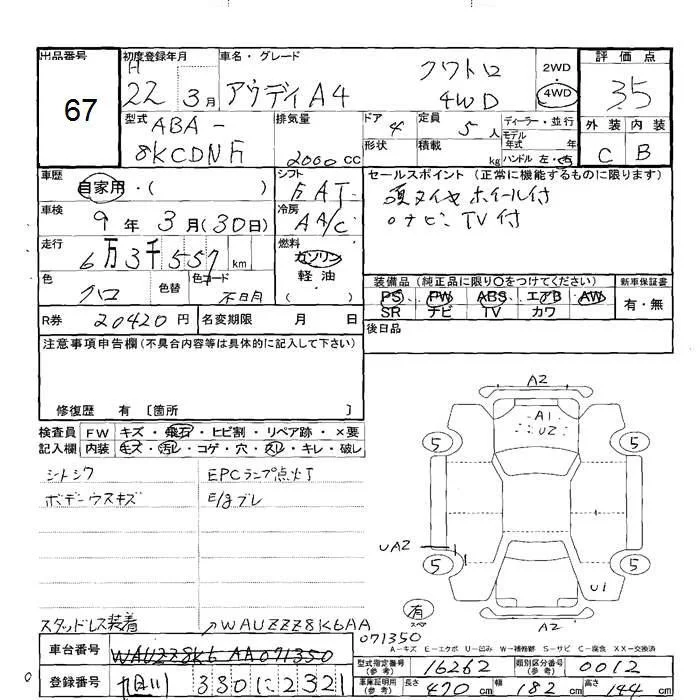 出品番号
67
初度登録年月
H
22 3月
車名・グレード
アウディA4
クワトロ
4WD
2WD
4WD
評価点
3.5
外装 内装
C B
型式
ABA-
8KCDNF
排気量
2000 cc
ドア
4
形状
定員
5人
積載
kg
ディーラー・並行
モデル
年式 年
ハンドル 左・右
車歴
自家用・( )
シフト
FAT
セールスポイント (正常に機能するものに限ります)
夏タイヤホイール付
ナビ、TV付
車検
9年 3月(30日)
冷房
AA/C
走行
6万3千557 km
燃料
ガソリン
軽油
( )
色
クロ
色替
色コード
不明
装備品 (純正品に限り○をつけてください)
新車保証書
PS PW ABS エアB AW
SR ナビ TV カワ
有・無
R券
20420円
名変期限 月 日
後日品
注意事項申告欄(不具合内容等は具体的に記入して下さい)
修復歴 有 [箇所 ]
検査員
記入欄
FW キズ・飛石・ヒビ割・リペア跡・×要
内装 キズ・汚レ・コゲ・穴・スレ・キレ・破レ
シートシワ
ボデーウスキズ
EPCランプ点灯
E/gブレ
A2
A1
U2
5
5
UA2
5
5
U1
A2
有
スペア
スタッドレス装着
WAUZZZ8K6AA
071350
A-キズ E-エクボ U-凹み W-補修跡 S-サビ C-腐食 XX-交換済
車台番号
WAUZZ8K6 AA071350
型式指定番号
(参考)
16262
類別区分番号
(参考)
0012
登録番号
330 に 2321
車庫証明用
(参考)
長さ 470 cm
幅 182 cm
高さ 144 cm